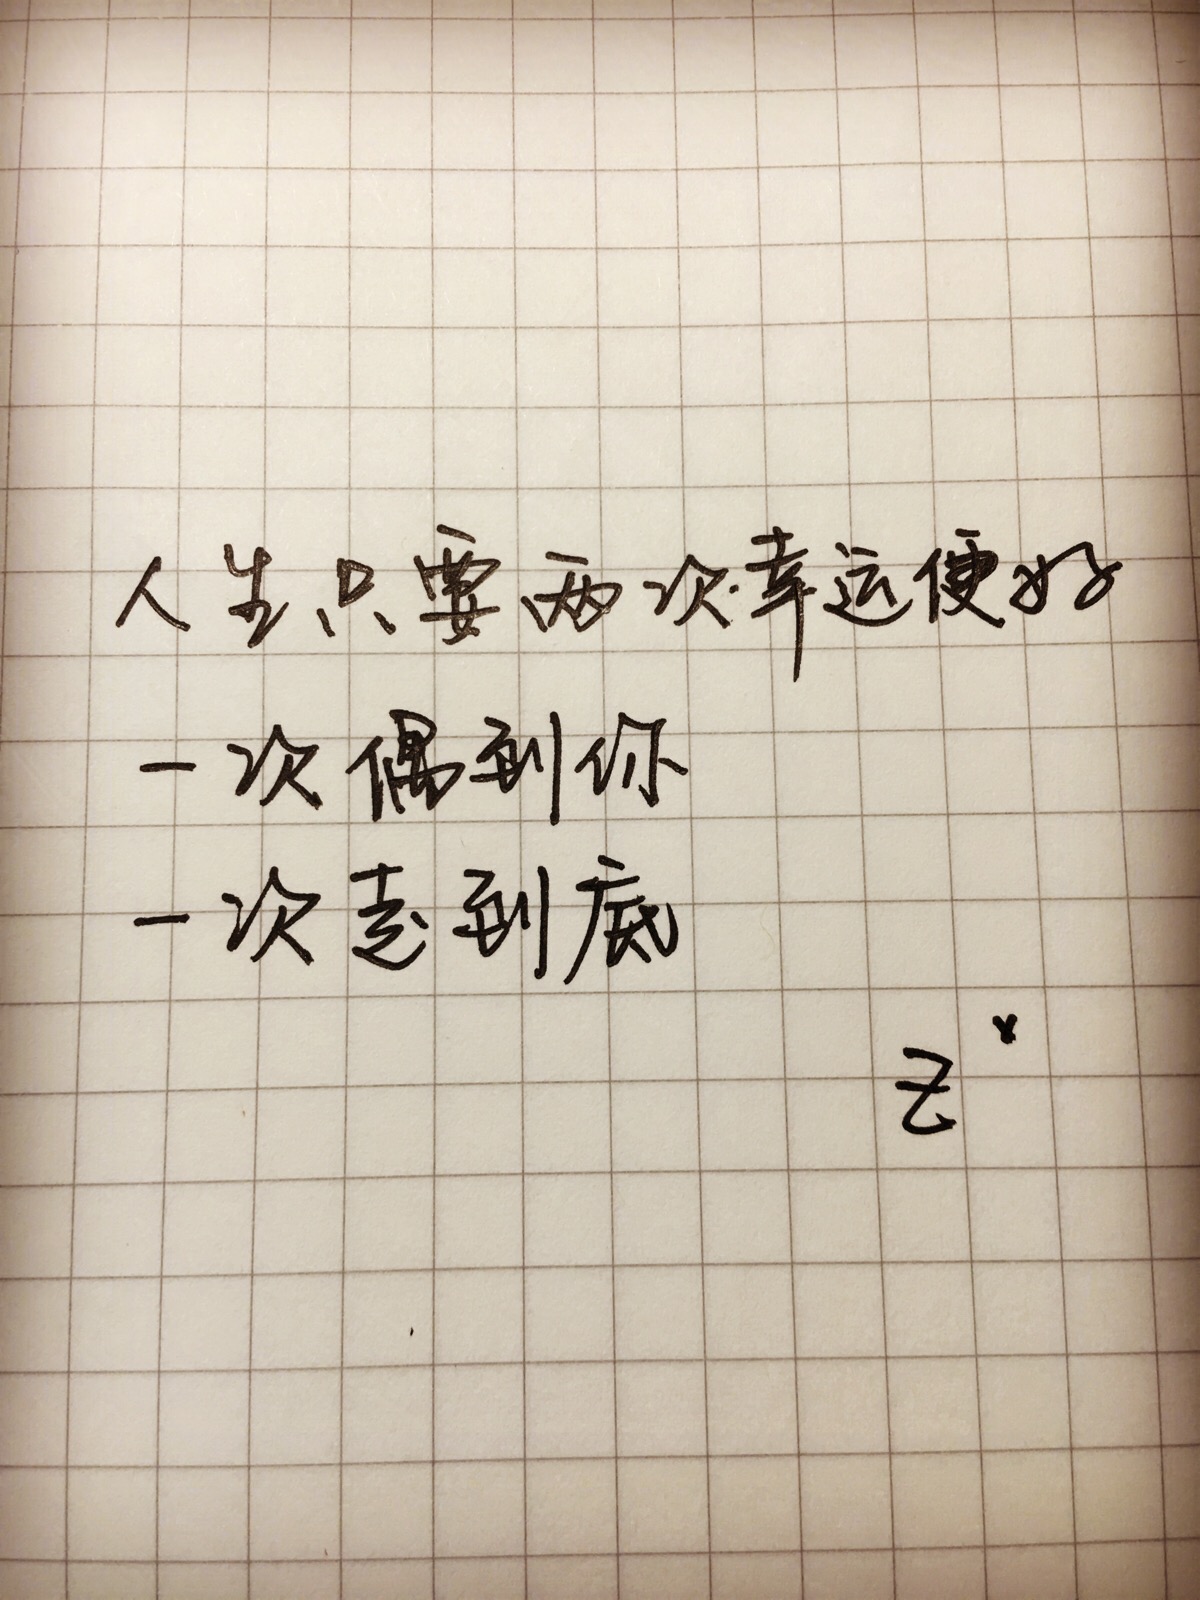 人生只要两次幸运便好
一次偶到你
一次走到底
Z